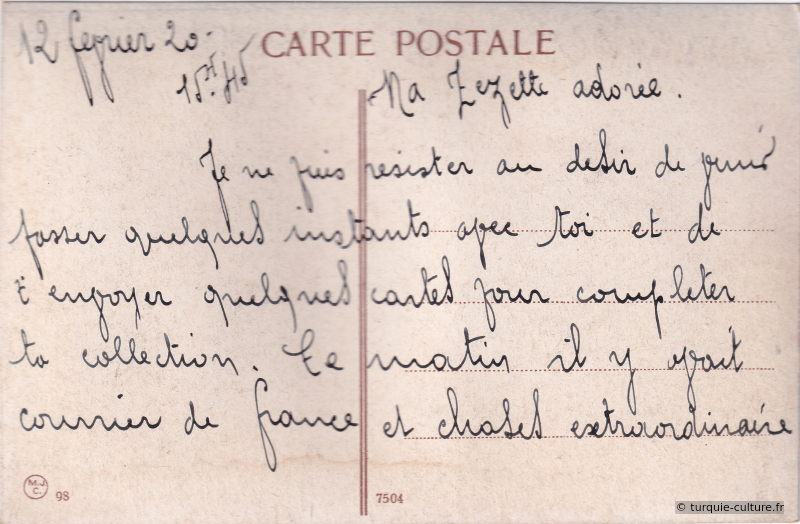 12 fevrier 20-
CARTE POSTALE
15H.45
Ma Zezette adorée.
Je ne puis resister au desir de
passer quelques instants avec toi et de
t'envoyer quelques cartes pour completer
ta collection. Ce matin il y avait
courrier de france et choses extraordinaire
M.J.
C.
98
7504
© turquie-culture.fr